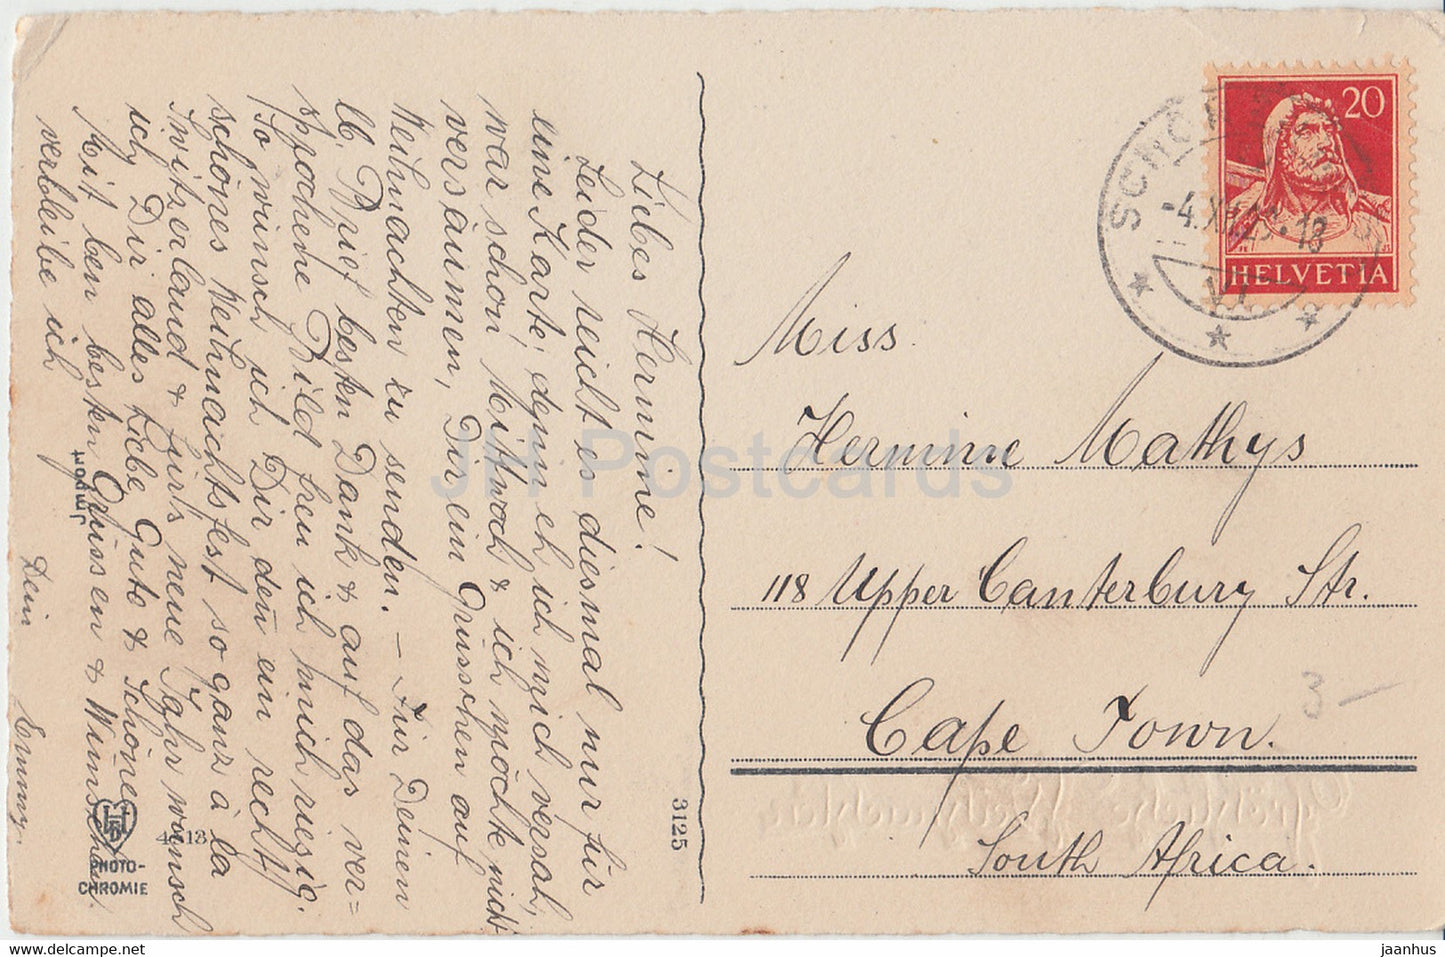 Liebes Hermine!
Leider reicht es diesmal nur für
eine Karte, denn eh ich mich versah,
war schon Mittwoch & ich möchte nicht
versäumen, Dir ein Grüsschen auf
Weihnachten zu senden. – Für Deinen
lb. Brief besten Dank & auf das ver=
sprochene Bild freu ich mich riesig.
So wünsch ich Dir denn ein recht
schönes Weihnachtsfest so ganz à la
Switzerland & fürs neue Jahr wünsch
ich Dir alles Liebe Gute & Schöne
Mit den besten Grüssen & Wünschen
verbleibe ich
Dein Emmy.
Import
HB
PHOTO-
CHROMIE
4413
3125
20
HELVETIA
-4.XII.23.-13
VI
Miss.
Hermine Mathys
118 Upper Canterbury Str.
Cape Town.
South Africa.
3 –
JH Postcards
www.delcampe.net
jaanhus